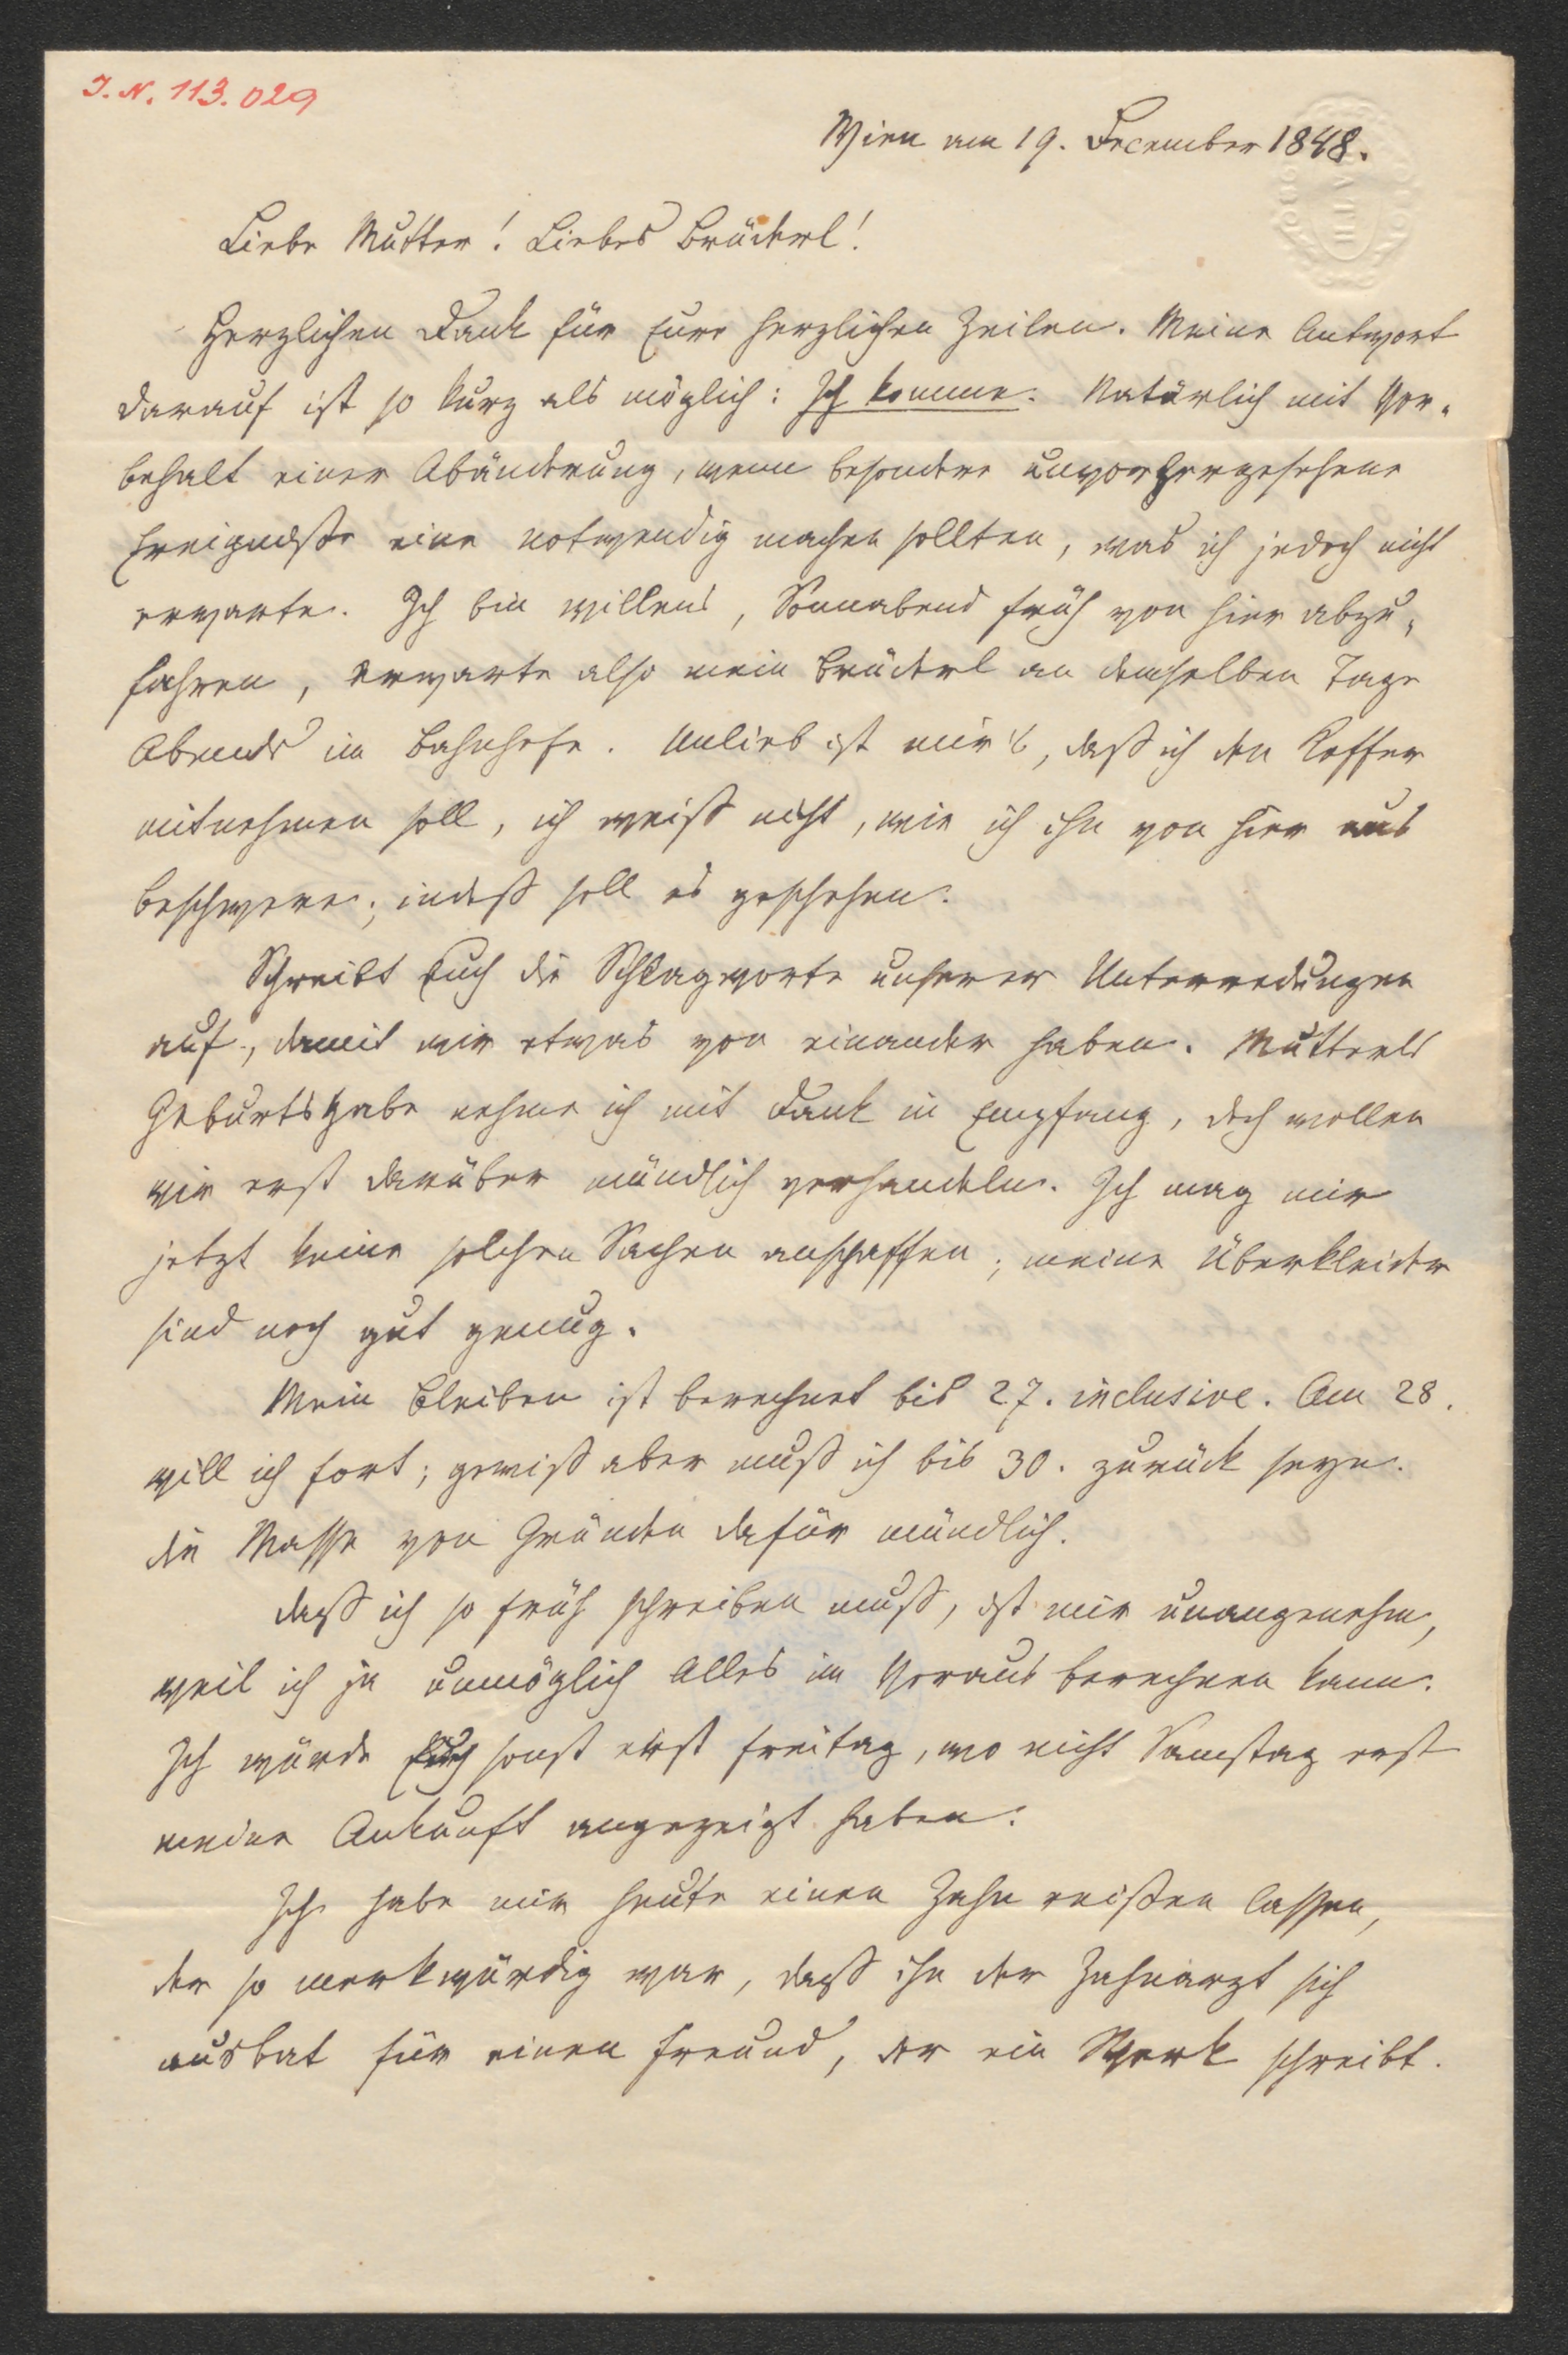 J. N. 113.029
Wien am 19. December 1848.
Liebe Mutter! Liebes Brüderl!
Herzlichen Dank für Eure herzlichen Zeilen. Meine Antwort
darauf ist so kurz als möglich: Ich komme. Natürlich mit Vor-
behalt einer Abänderung, wenn besondere unvorhergesehene
Ereigniße eine notwendig machen sollten, was ich jedoch nicht
erwarte. Ich bin willens, Sonnabend früh von hier abzu-
fahren, erwarte also mein Brüderl an demselben Tage
Abends im Bahnhofe. Unlieb ist mir's, daß ich den Koffer
mitnehmen soll, ich weiß nicht, wie ich ihn von hier aus
beschwere; indeß soll es geschehen.
Schreibt Euch die Schlagworte unserer Unterredungen
auf, damit wir etwas von einander haben. Mutterls
Geburtsgabe nehme ich mit Dank in Empfang, doch wollen
wir erst darüber mündlich verhandeln. Ich mag mir
jetzt keine solchen Sachen anschaffen; meine Überkleider
sind noch gut genug.
Mein Bleiben ist berechnet bis 27. inclusive. Am 28.
will ich fort; gewiß aber muß ich bis 30. zurück seyn.
die Masse von Gründen dafür mündlich.
Daß ich so früh schreiben muß, ist mir unangenehm,
weil ich ja unmöglich Alles im Voraus berechnen kann.
Ich würde Euch sonst erst Freitag, wo nicht Samstag erst
meine Ankunft angezeigt haben.
Ich habe mir heute einen Zahn reißen lassen,
der so merkwürdig war, daß ihn der Zahnarzt sich
ausbat für einen Freund, der ein Werk schreibt.